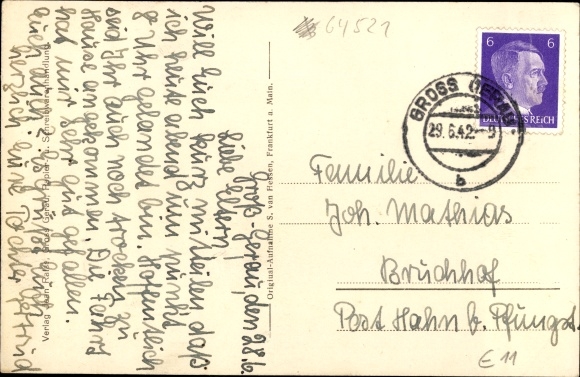 64521
6 6
DEUTSCHES REICH
GROSS GERAU
29.6.42.-9
b
Groß-Gerau, den 28.6.
Liebe Eltern!
Will Euch kurz mitteilen daß
ich heute abend um punkt
8 Uhr gelandet bin. Hoffentlich
seid Ihr auch noch trocken zu
Hause angekommen. Die Fahrt
hat mir sehr gut gefallen.
Euch auch? Es grüßt Euch
herzlich Eure Tochter Gertrud
Verlag Jean Fark, Gross Gerau, Papier- u. Schreibwarenhandlung.
Original-Aufnahme S. van Hessen, Frankfurt a. Main.
Familie
Joh. Mathias
Bruchhof
Post Hahn b. Pfungst.
E 11